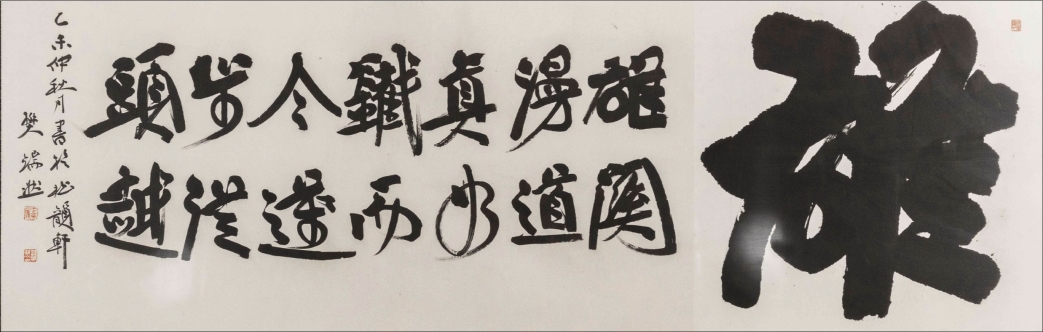 雄
雄關
漫道
真如
鐵而
今邁
步從
頭越
乙未仲秋月書於韻軒
樊瑞